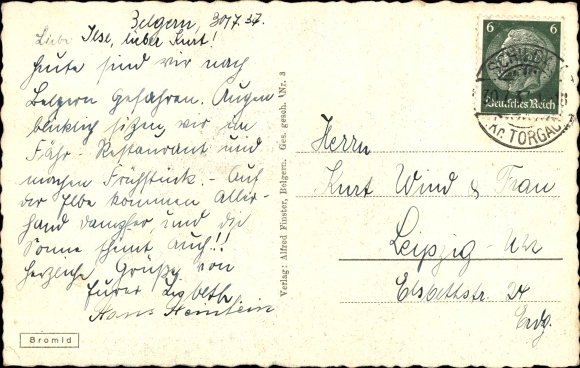 Belgern, 30/7.37.
Liebe Ilse, lieber Kurt!
Heute sind wir nach
Belgern gefahren. Augen
blicklich sitzen wir im
Fähr-Restaurant und
machen Frühstück. - Auf
der Elbe kommen Aller-
hand Dampfer, und die
Sonne scheint auch!!
Herzliche Grüße von
Eurer Lisbeth
Hans
Bromid
Verlag: Alfred Finster, Belgern. Ges. gesch. Nr. 3
6 6
Deutsches Reich
SCHILDAU
(Kr. TORGAU)
Herrn
Kurt Wind & Frau
Leipzig-
Elsbethstr. 24
Erdg.